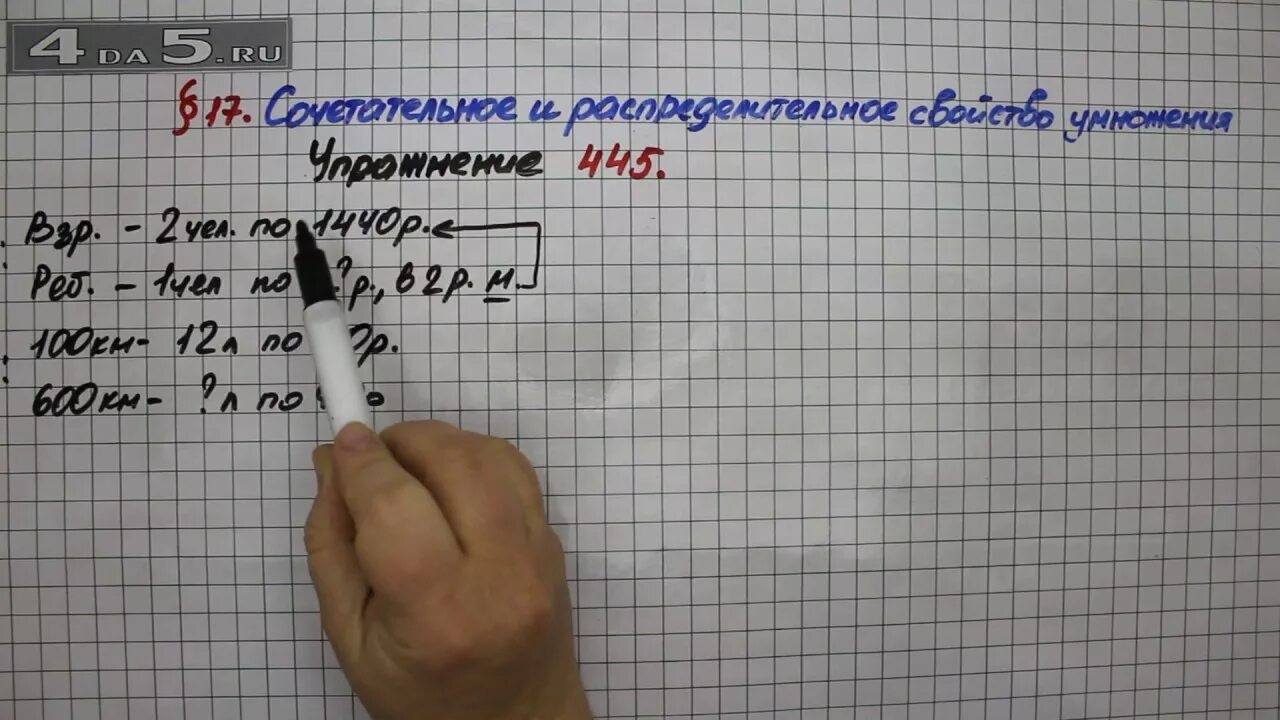 4DA5.RU
§17. Сочетательное и распределительное свойство умножения
Упражнение 445.
Взр. - 2 чел. по 1440р.
Реб. - 1 чел по ?р., в 2 р. м.
100км - 12л по р.
600км - ?л по